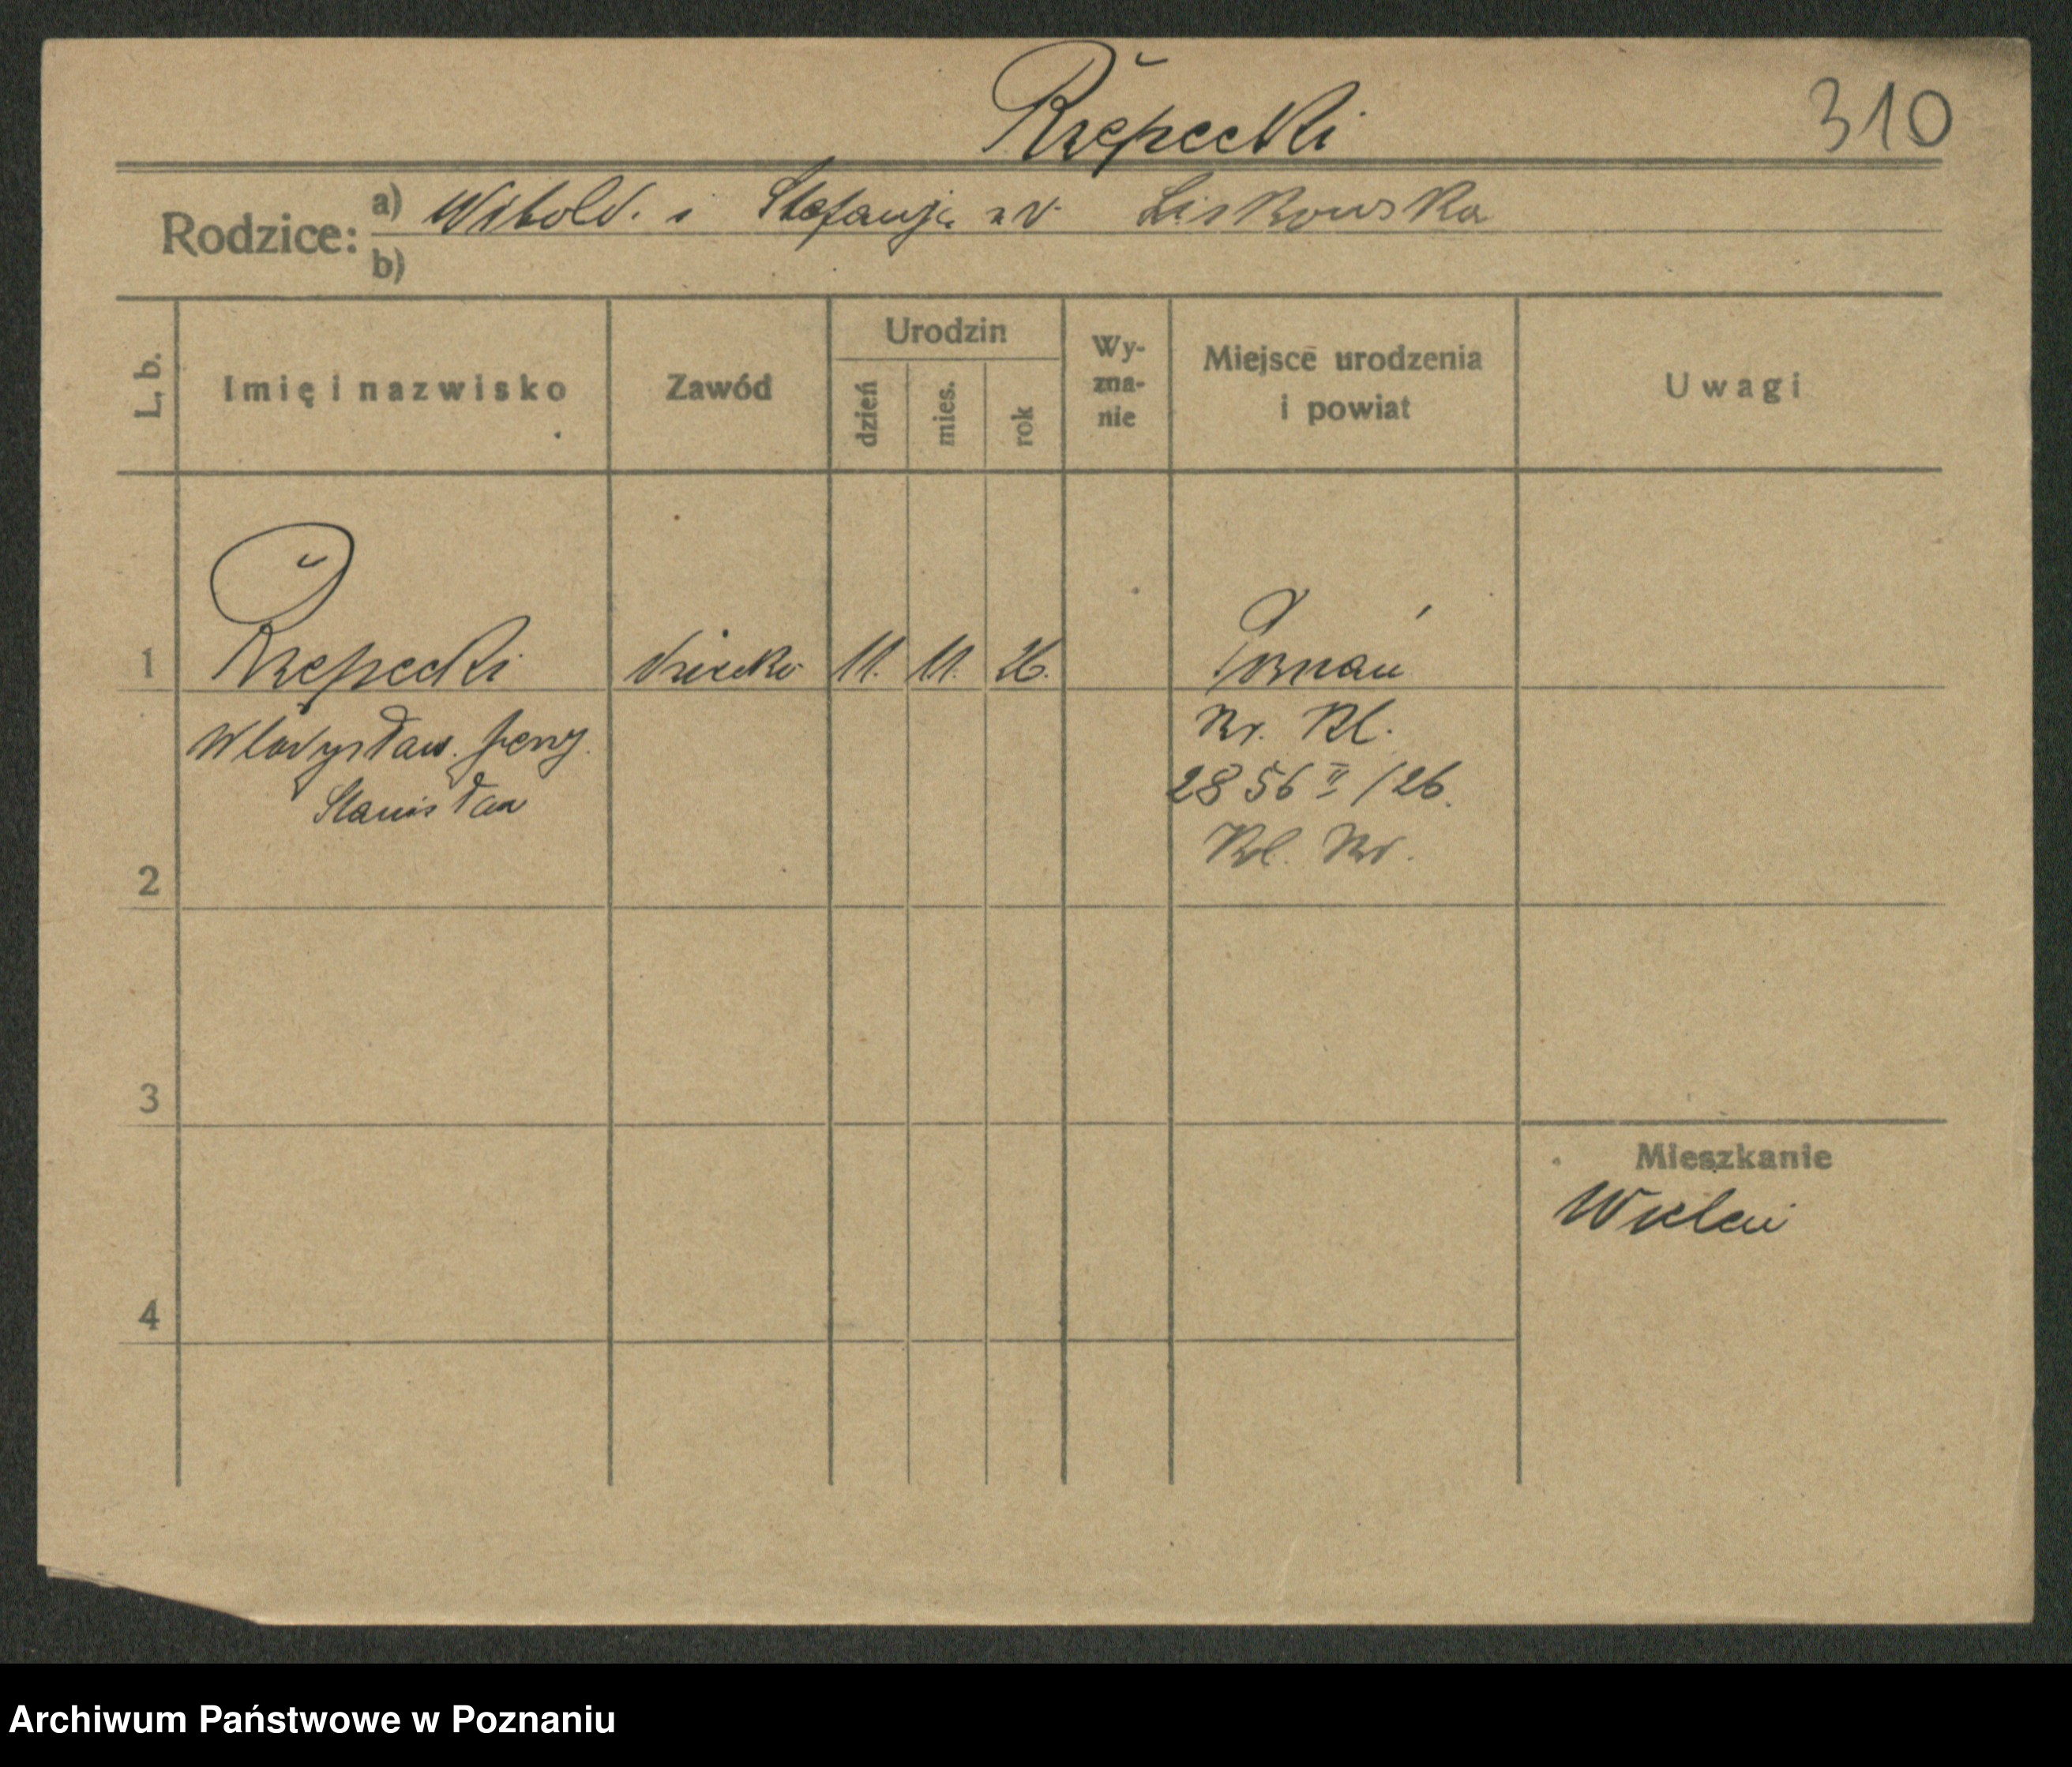 Rzepecki
310
Rodzice: a) Witold. i Stefanja zd. Liskowska
b)
L. b.
Imię i nazwisko
Zawód
Urodzin
dzień
mies.
rok
Wy-
zna-
nie
Miejsce urodzenia
i powiat
Uwagi
1 Rzepecki dziecko 11. 11. 26. Poznań
Władysław. Jerzy. Nr. Kl.
Stanisław 2856 II /26.
Kl. Nr.
2
3
Mieszkanie
Wieleń
4
Archiwum Państwowe w Poznaniu